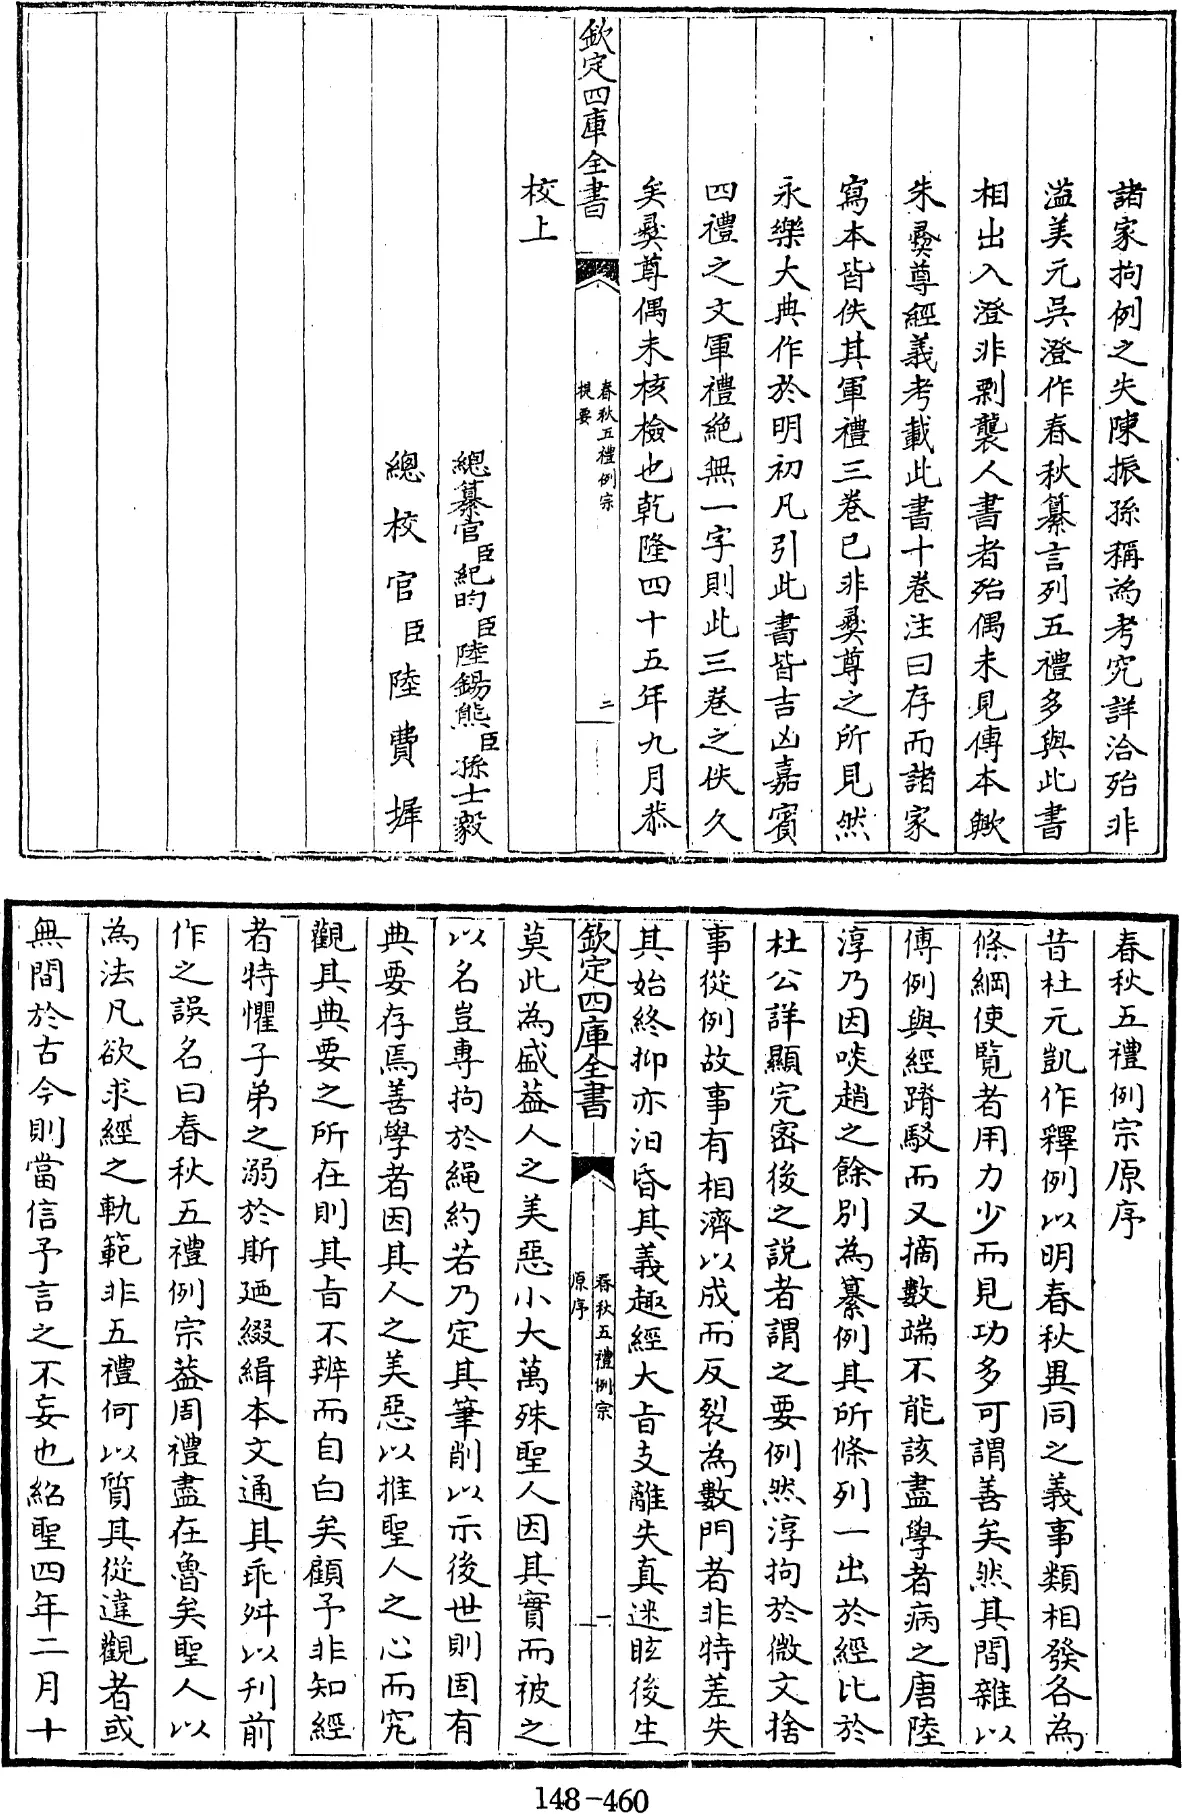 諸家拘例之失陳振孫稱為考究詳洽殆非
溢美元吳澄作春秋纂言列五禮多與此書
相出入澄非剽襲人書者殆偶未見傳本歟
朱彝尊經義考載此書十卷注曰存而諸家
寫本皆佚其軍禮三卷已非彝尊之所見然
永樂大典作於明初凡引此書皆吉凶嘉賓
四禮之文軍禮絶無一字則此三卷之佚久
矣彝尊偶未核檢也乾隆四十五年九月恭
欽定四庫全書
春秋五禮例宗
提要
二
校上
總纂官臣紀昀臣陸錫熊臣孫士毅
總校官臣陸費墀
春秋五禮例宗原序
昔杜元凱作釋例以明春秋異同之義事類相發各為
條綱使覽者用力少而見功多可謂善矣然其間雜以
傳例與經踳駁而又摘數端不能該盡學者病之唐陸
淳乃因啖趙之餘別為纂例其所條列一出於經比於
杜公詳顯完密後之説者謂之要例然淳拘於微文捨
事從例故事有相濟以成而反裂為數門者非特差失
其始終抑亦汩昏其義趣經大旨支離失真迷眩後生
欽定四庫全書
春秋五禮例宗
原序
一
莫此為盛葢人之美惡小大萬殊聖人因其實而被之
以名豈專拘於繩約若乃定其筆削以示後世則固有
典要存焉善學者因其人之美惡以推聖人之心而究
觀其典要之所在則其旨不辨而自白矣顧予非知經
者特懼子弟之溺於斯廼綴緝本文通其乖舛以刋前
作之誤名曰春秋五禮例宗葢周禮盡在魯矣聖人以
為法凡欲求經之軌範非五禮何以質其從違觀者或
無間於古今則當信予言之不妄也紹聖四年二月十
148-460